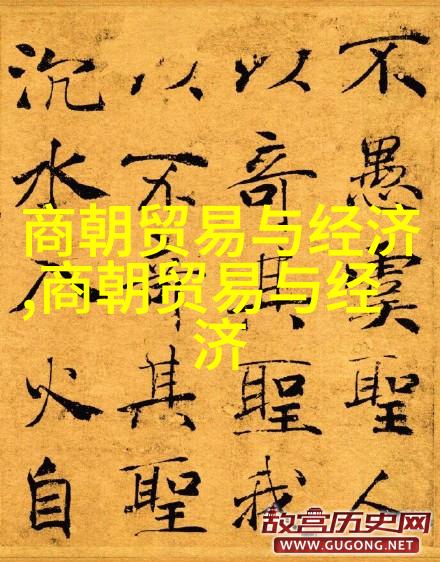 不愚虞聖人
以奇其聖我
以不奇其聖
沉水入火自
商朝贸易与经济
,商朝贸易与经
济
故宫历史网
WWW.GUGONG.NET